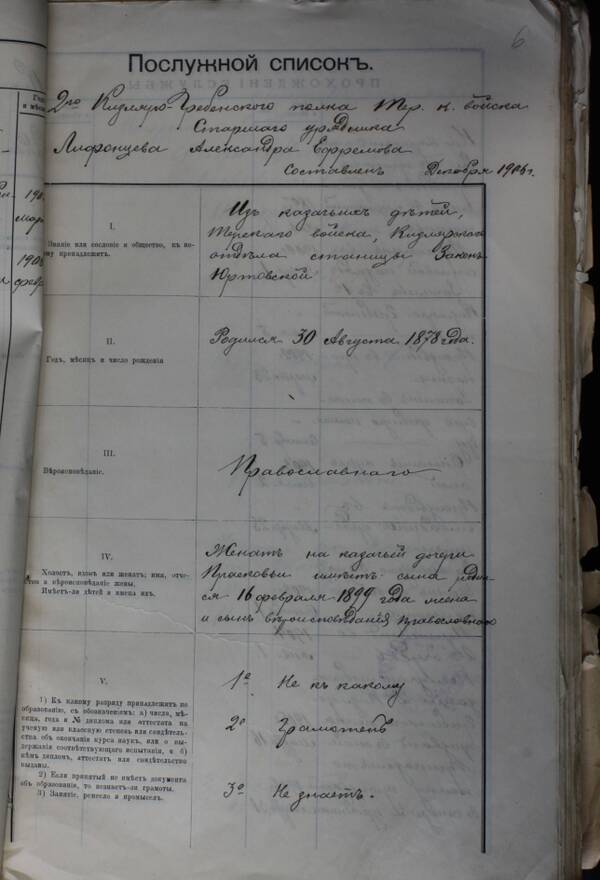 6
Послужной списокъ.
2го Кизляро-Гребенского полка Тер. к. войска
Старшаго урядника
Александра Ефремова
Составленъ Декабря 1906 г.
I.
Званіе или сословіе и общество, къ ко-
ему принадлежитъ.
Изъ казачьихъ дѣтей,
Терскаго войска, Кизлярскаго
отдѣла станицы Закан-
Юртовской
II.
Годъ, мѣсяцъ и число рожденія
Родился 30 Августа 1878 года.
III.
Вѣроисповѣданіе.
Православнаго
IV.
Холостъ, вдовъ или женатъ; имя, отче-
ство и вѣроисповѣданіе жены.
Имѣетъ-ли дѣтей и имена ихъ.
Женатъ на казачьей дочери
Прасковьи имѣетъ сына родил-
ся 16 февраля 1899 года жена
и сынъ вѣроисповѣданія православнаго
V.
1) Къ какому разряду принадлежитъ по
образованію, съ обозначеніемъ: а) числа, мѣ-
сяца, года и № диплома или аттестата на
ученую или классную степень или свидѣтель-
ства объ окончаніи курса наукъ, или о вы-
держаніи соотвѣтствующаго испытанія, и б)
кѣмъ дипломъ, аттестатъ или свидѣтельство
выданы.
2) Если принятый не имѣетъ документа
объ образованіи, то знаетъ-ли грамоты.
3) Занятіе, ремесло и промыселъ.
1º Не къ какому
2º Грамотенъ
3º Не знаетъ.